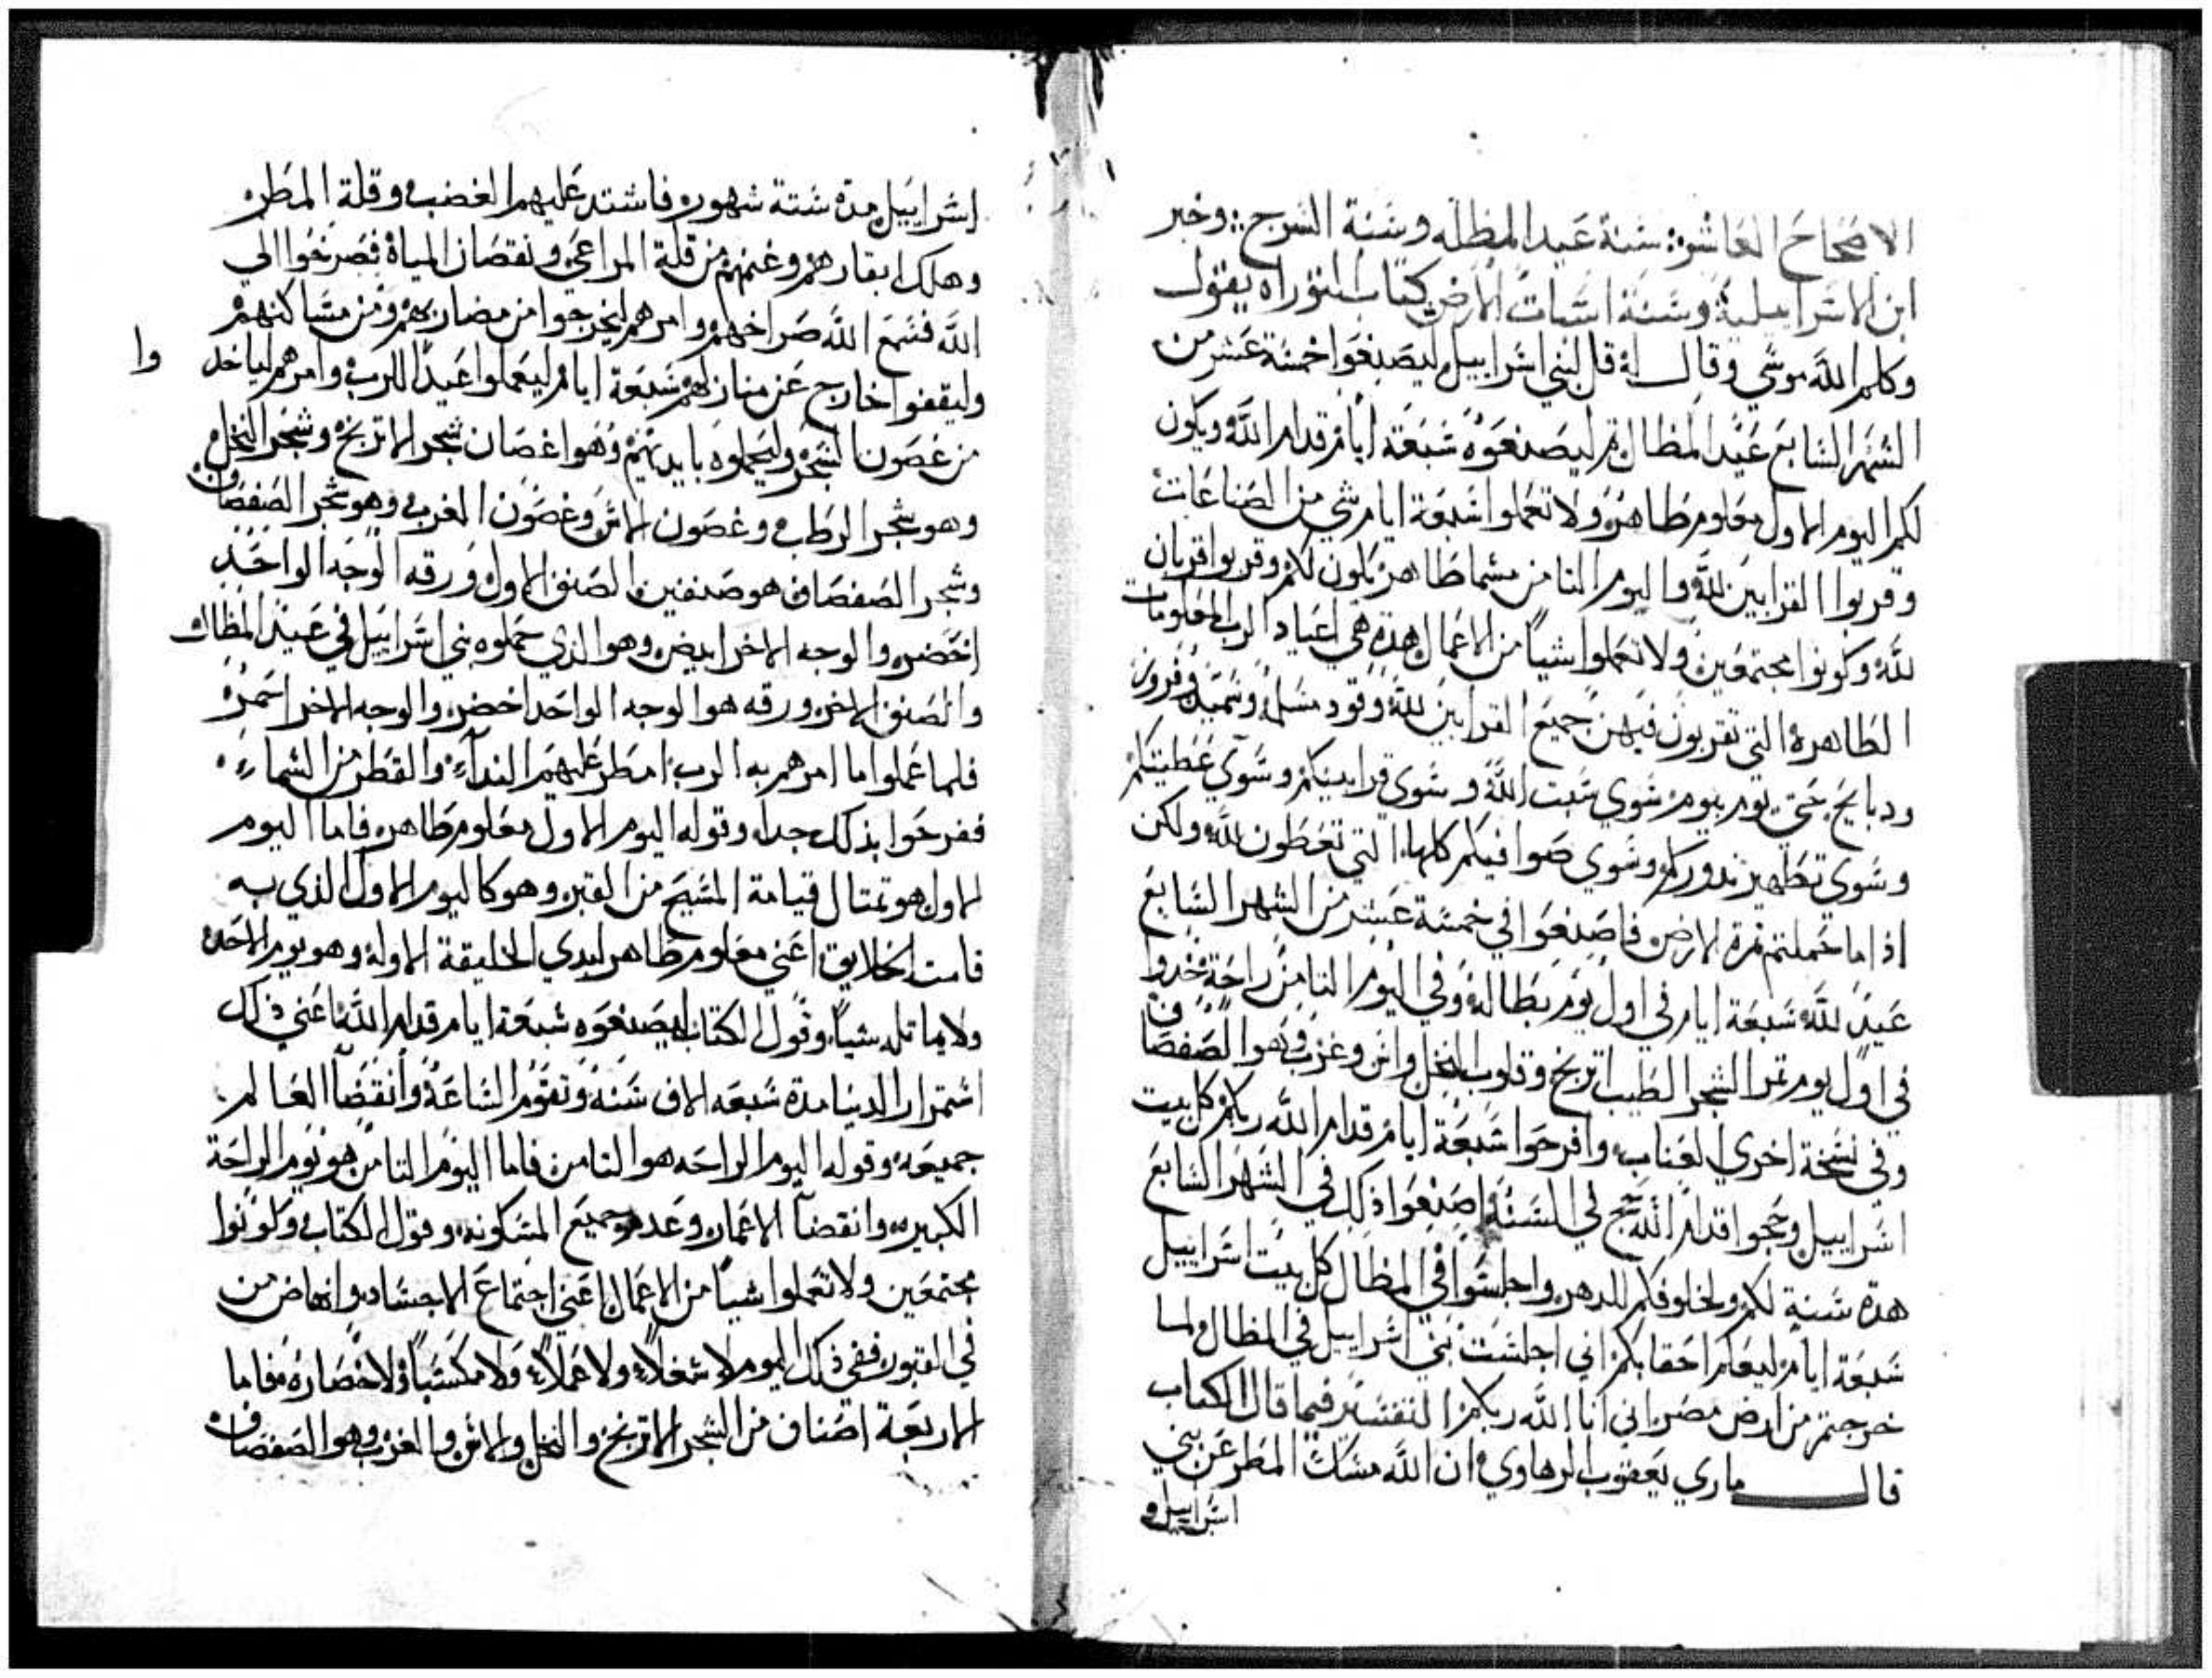 الاصحاح العاشر: سنة عيد المظله وسنة السرج: وخبر
ابن الاسراييلية وسنة اسبات الارض كتاب التوراه يقول
وكلم الله موسي وقال له قل لبني اسراييل ليصنعوا خمسة عشر من
الشهر السابع عيد المظال ليصنعوه سبعة ايام قدام الله ويكون
لكم اليوم الاول معلوم طاهر ولا تعملوا سبعة ايام شي من الصناعات
وقربوا القرابين لله واليوم الثامن مسما طاهر يكون لكم وقربوا قربان
لله وكونوا مجتمعين ولا تعملوا شياً من الاعمال هده هي اعياد الرب المعلومات
الطاهرة التي تقربون فيهن جميع القرابين لله وقود مسلم وسميد وفروز
ودبايح بحق يوم بيوم سوي سبت الله وسوي قرابينكم وسوي عطيتكم
وسوي تطهير ندوركم وسوي صوافيكم كلها التي تعطون لله ولكن
اذا ما حملتم ثمرة الارض فاصنعوا في خمسة عشر من الشهر السابع
عيد لله سبعة ايام في اول يوم بطاله وفي اليوم الثامن راحة خدوا
في اول يوم ثمر الشجر الطيب اترنج وقلوب النخل واس وغرب وهوا الصفصاف
وفي نسخة اخري العناب، وافرحوا سبعة ايام قدام الله ربكم كل بيت
اسراييل وحجوا قدام الله حج في السنة واصنعوا ذلك في الشهر السابع
هده سنة لكم ولخلوفكم للدهر واجلسوا في المظال كل بيت اسراييل
سبعة ايام ليعلم احقابكم اني اجلست بني اسراييل في المظال ولما
خرجتم من ارض مصر اني انا الله ربكم التفسير فيما قال الكتاب
قال ماري يعقوب الرهاوي ان الله مسك المطر عن بني
اسراييل
اسراييل مدة ستة شهور فاشتد عليهم الغضب وقلة المطر
وهلك ابقارهم وغنمهم من قلة المراعي ونقصان المياة فصرخوا الي
الله فسمع الله صراخهم وامرهم ليخرجوا من مضاربهم ومن مساكنهم
وليقفوا خارج عن منازلهم سبعة ايام ليعملوا عيداً للرب وامرهم لياخد
وا
من غصون الشجر وليحملوه بايديهم وهوا اغصان شجر الاترنج وشجر النخل
وهو شجر الرطب وغصون الاس وغصون الغرب وهو شجر الصفصاف
وشجر الصفصاف هو صنفين الصنف الاول ورقه الوجه الواحد
اخضر والوجه الاخر ابيض وهو الذي حملوه بني اسراييل في عيد المظال
والصنف الاخر ورقه هو الوجه الواحد اخضر والوجه الاخر اسمر
فلما عملوا ما امرهم به الرب امطر عليهم النداء والقطر من السماء
ففرحوا بذلك جدا، وقوله اليوم الاول معلوم طاهر فاما اليوم
الاول هو تمثال قيامة المسيح من القبر وهو كا اليوم الاول الذي به
قامت الخلايق اعني معلوم طاهر لبدي الخليقة الاوله وهو يوم الاحد
ولا يماتله شيا، وقول الكتاب ليصنعوه سبعة ايام قدام الله اعني ذلك
استمرار الدنيا مدة سبعه الاف سنة وتقوم الساعة وانقضا العالم
جميعه، وقوله اليوم الراحه هو الثامن فاما اليوم الثامن هو يوم الراحة
الكبيره وانقضآ الاعمار وعد هو جميع المسكونه وقول الكتاب وكونوا
مجتمعين ولا تعملوا شياً من الاعمال اعني اجتماع الاجساد وانهاض من
في القبور ففي ذلك اليوم لا شغلاً ولا عملاً ولا مكسباً ولا خصاره، فاما
الاربعة اصناف من الشجر الاترنج والنخل والاس والغرب وهو الصفصاف